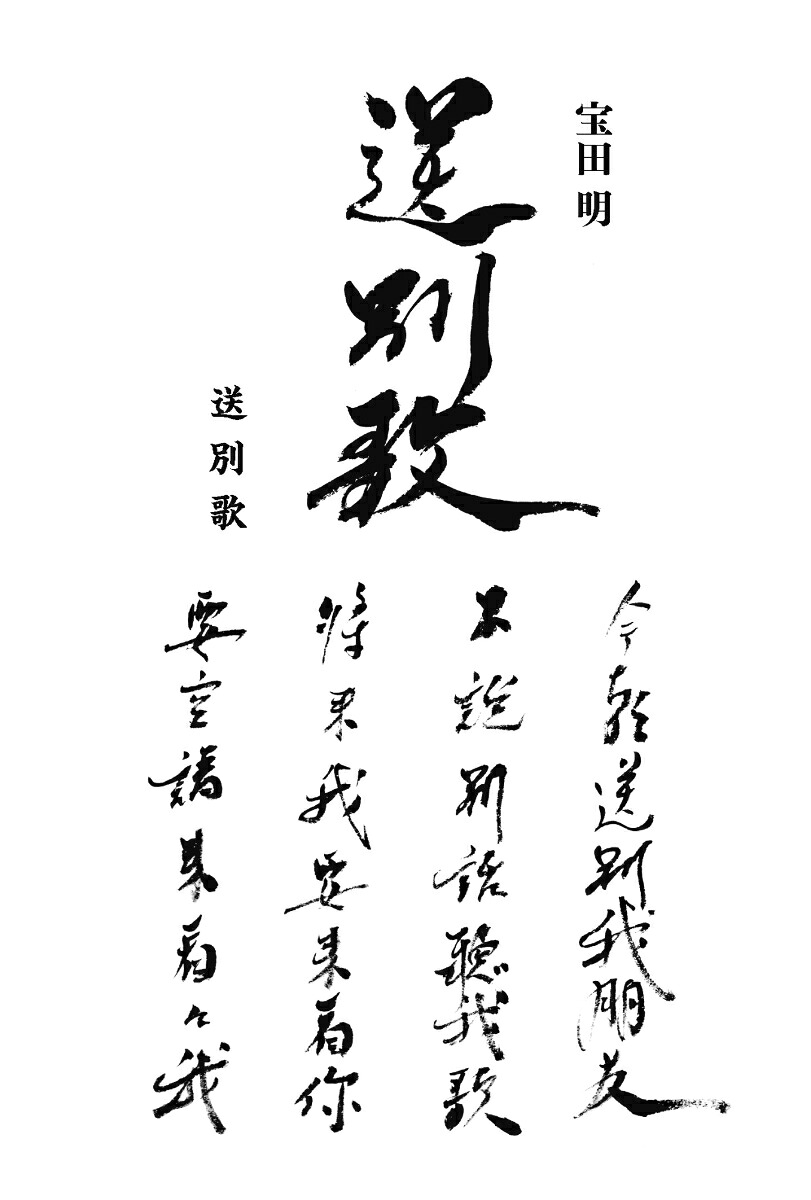 宝田 明
送別歌
送別歌
今朝送別我朋友
不說別話聽我歌
将来我要来看你
要空請来看々我